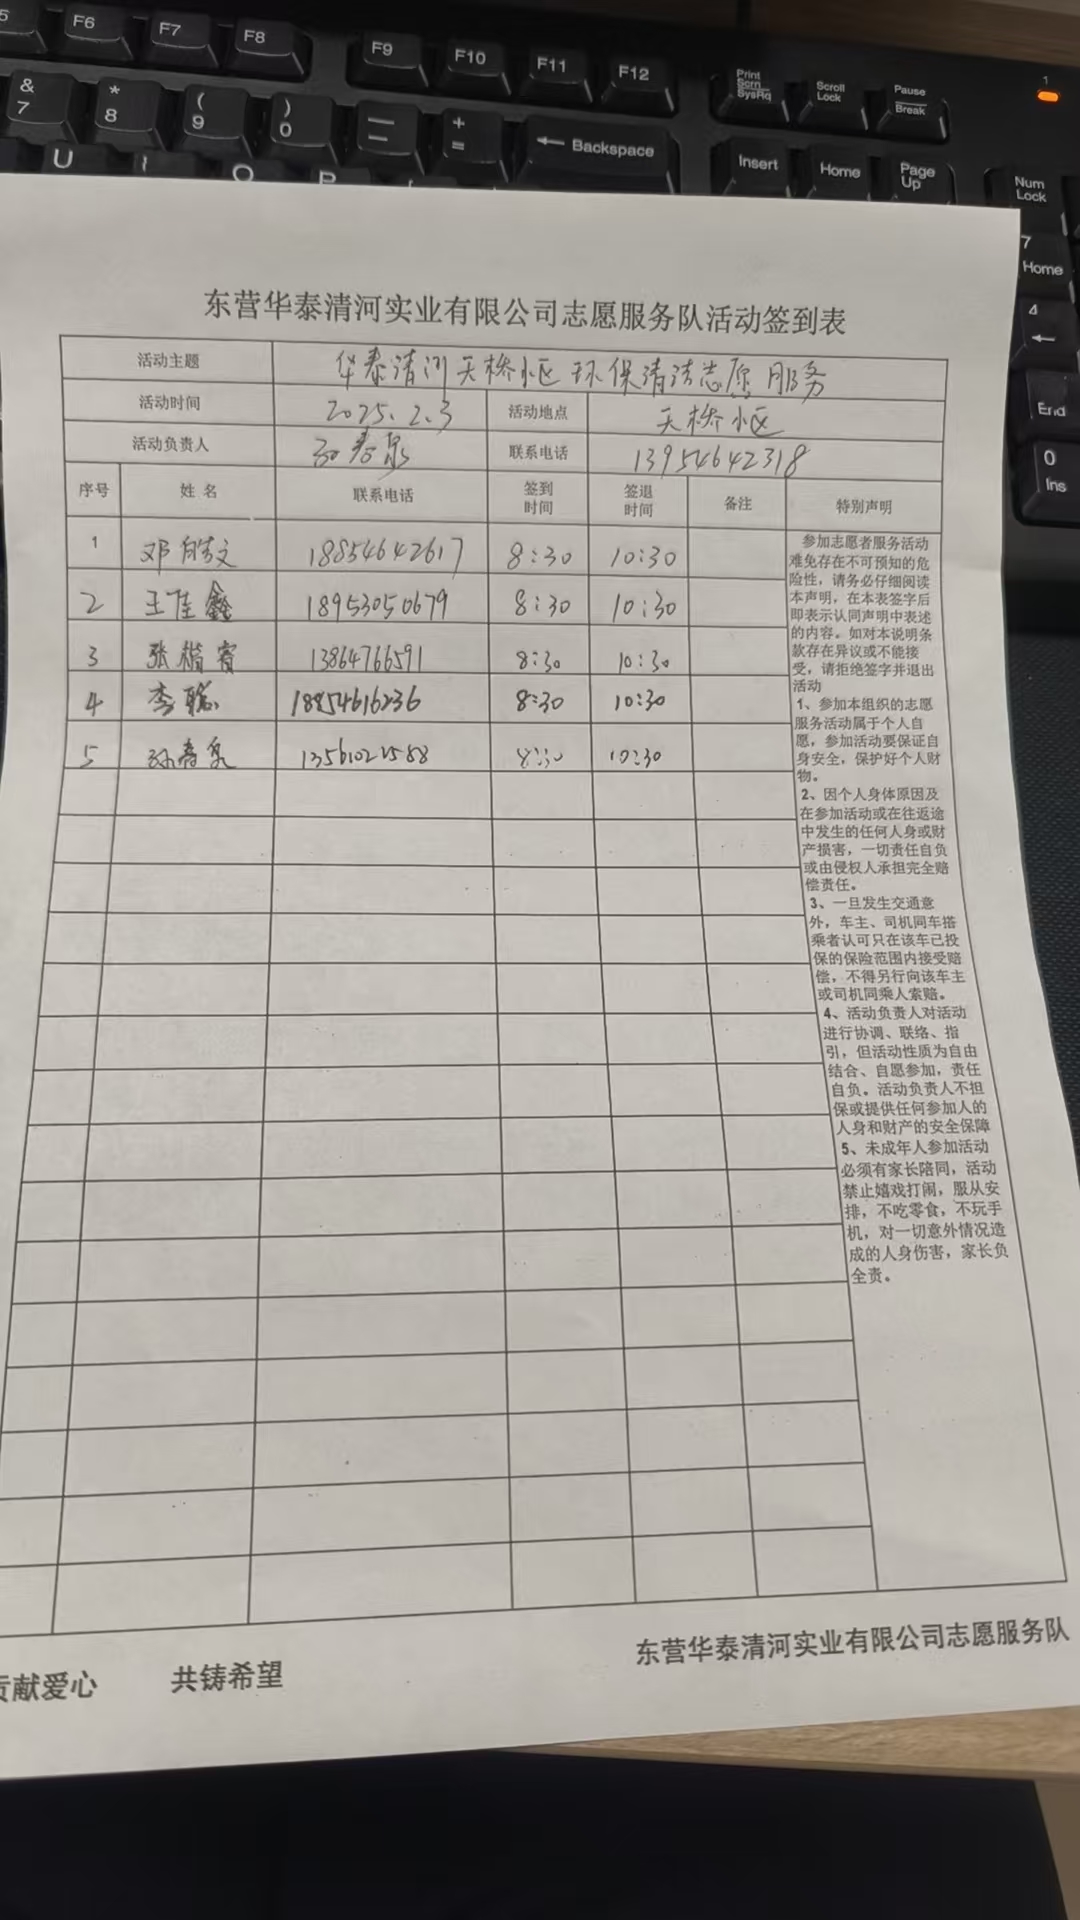 F6
F7
F8
F9
F10
F11
F12
Print Scrn SysRq
Scroll Lock
Pause Break
1
& 7
* 8
( 9
) 0
+ =
Backspace
Insert
Home
Page Up
Num Lock
U
7 Home
4
End
0 Ins
东营华泰清河实业有限公司志愿服务队活动签到表
活动主题 华泰清河天桥小区环保清洁志愿服务
活动时间 2025.2.3 活动地点 天桥小区
活动负责人 孙春泉 联系电话 13954642318
序号 姓名 联系电话 签到时间 签退时间 备注 特别声明
1 邓 文 18854642617 8:30 10:30
2 王佳鑫 18953050679 8:30 10:30
3 张楷睿 13864766591 8:30 10:30
4 李聪 18854616236 8:30 10:30
5 孙春泉 13561021588 8:30 10:30
参加志愿者服务活动
难免存在不可预知的危
险性，请务必仔细阅读
本声明，在本表签字后
即表示认同声明中表述
的内容。如对本说明条
款存在异议或不能接
受，请拒绝签字并退出
活动
1、参加本组织的志愿
服务活动属于个人自
愿，参加活动要保证自
身安全，保护好个人财
物。
2、因个人身体原因及
在参加活动或在往返途
中发生的任何人身或财
产损害，一切责任自负
或由侵权人承担完全赔
偿责任。
3、一旦发生交通意
外，车主、司机同车搭
乘者认可只在该车已投
保的保险范围内接受赔
偿，不得另行向该车主
或司机同乘人索赔。
4、活动负责人对活动
进行协调、联络、指
引，但活动性质为自由
结合、自愿参加，责任
自负。活动负责人不担
保或提供任何参加人的
人身和财产的安全保障
5、未成年人参加活动
必须有家长陪同，活动
禁止嬉戏打闹，服从安
排，不吃零食，不玩手
机，对一切意外情况造
成的人身伤害，家长负
全责。
东营华泰清河实业有限公司志愿服务队
贡献爱心 共铸希望